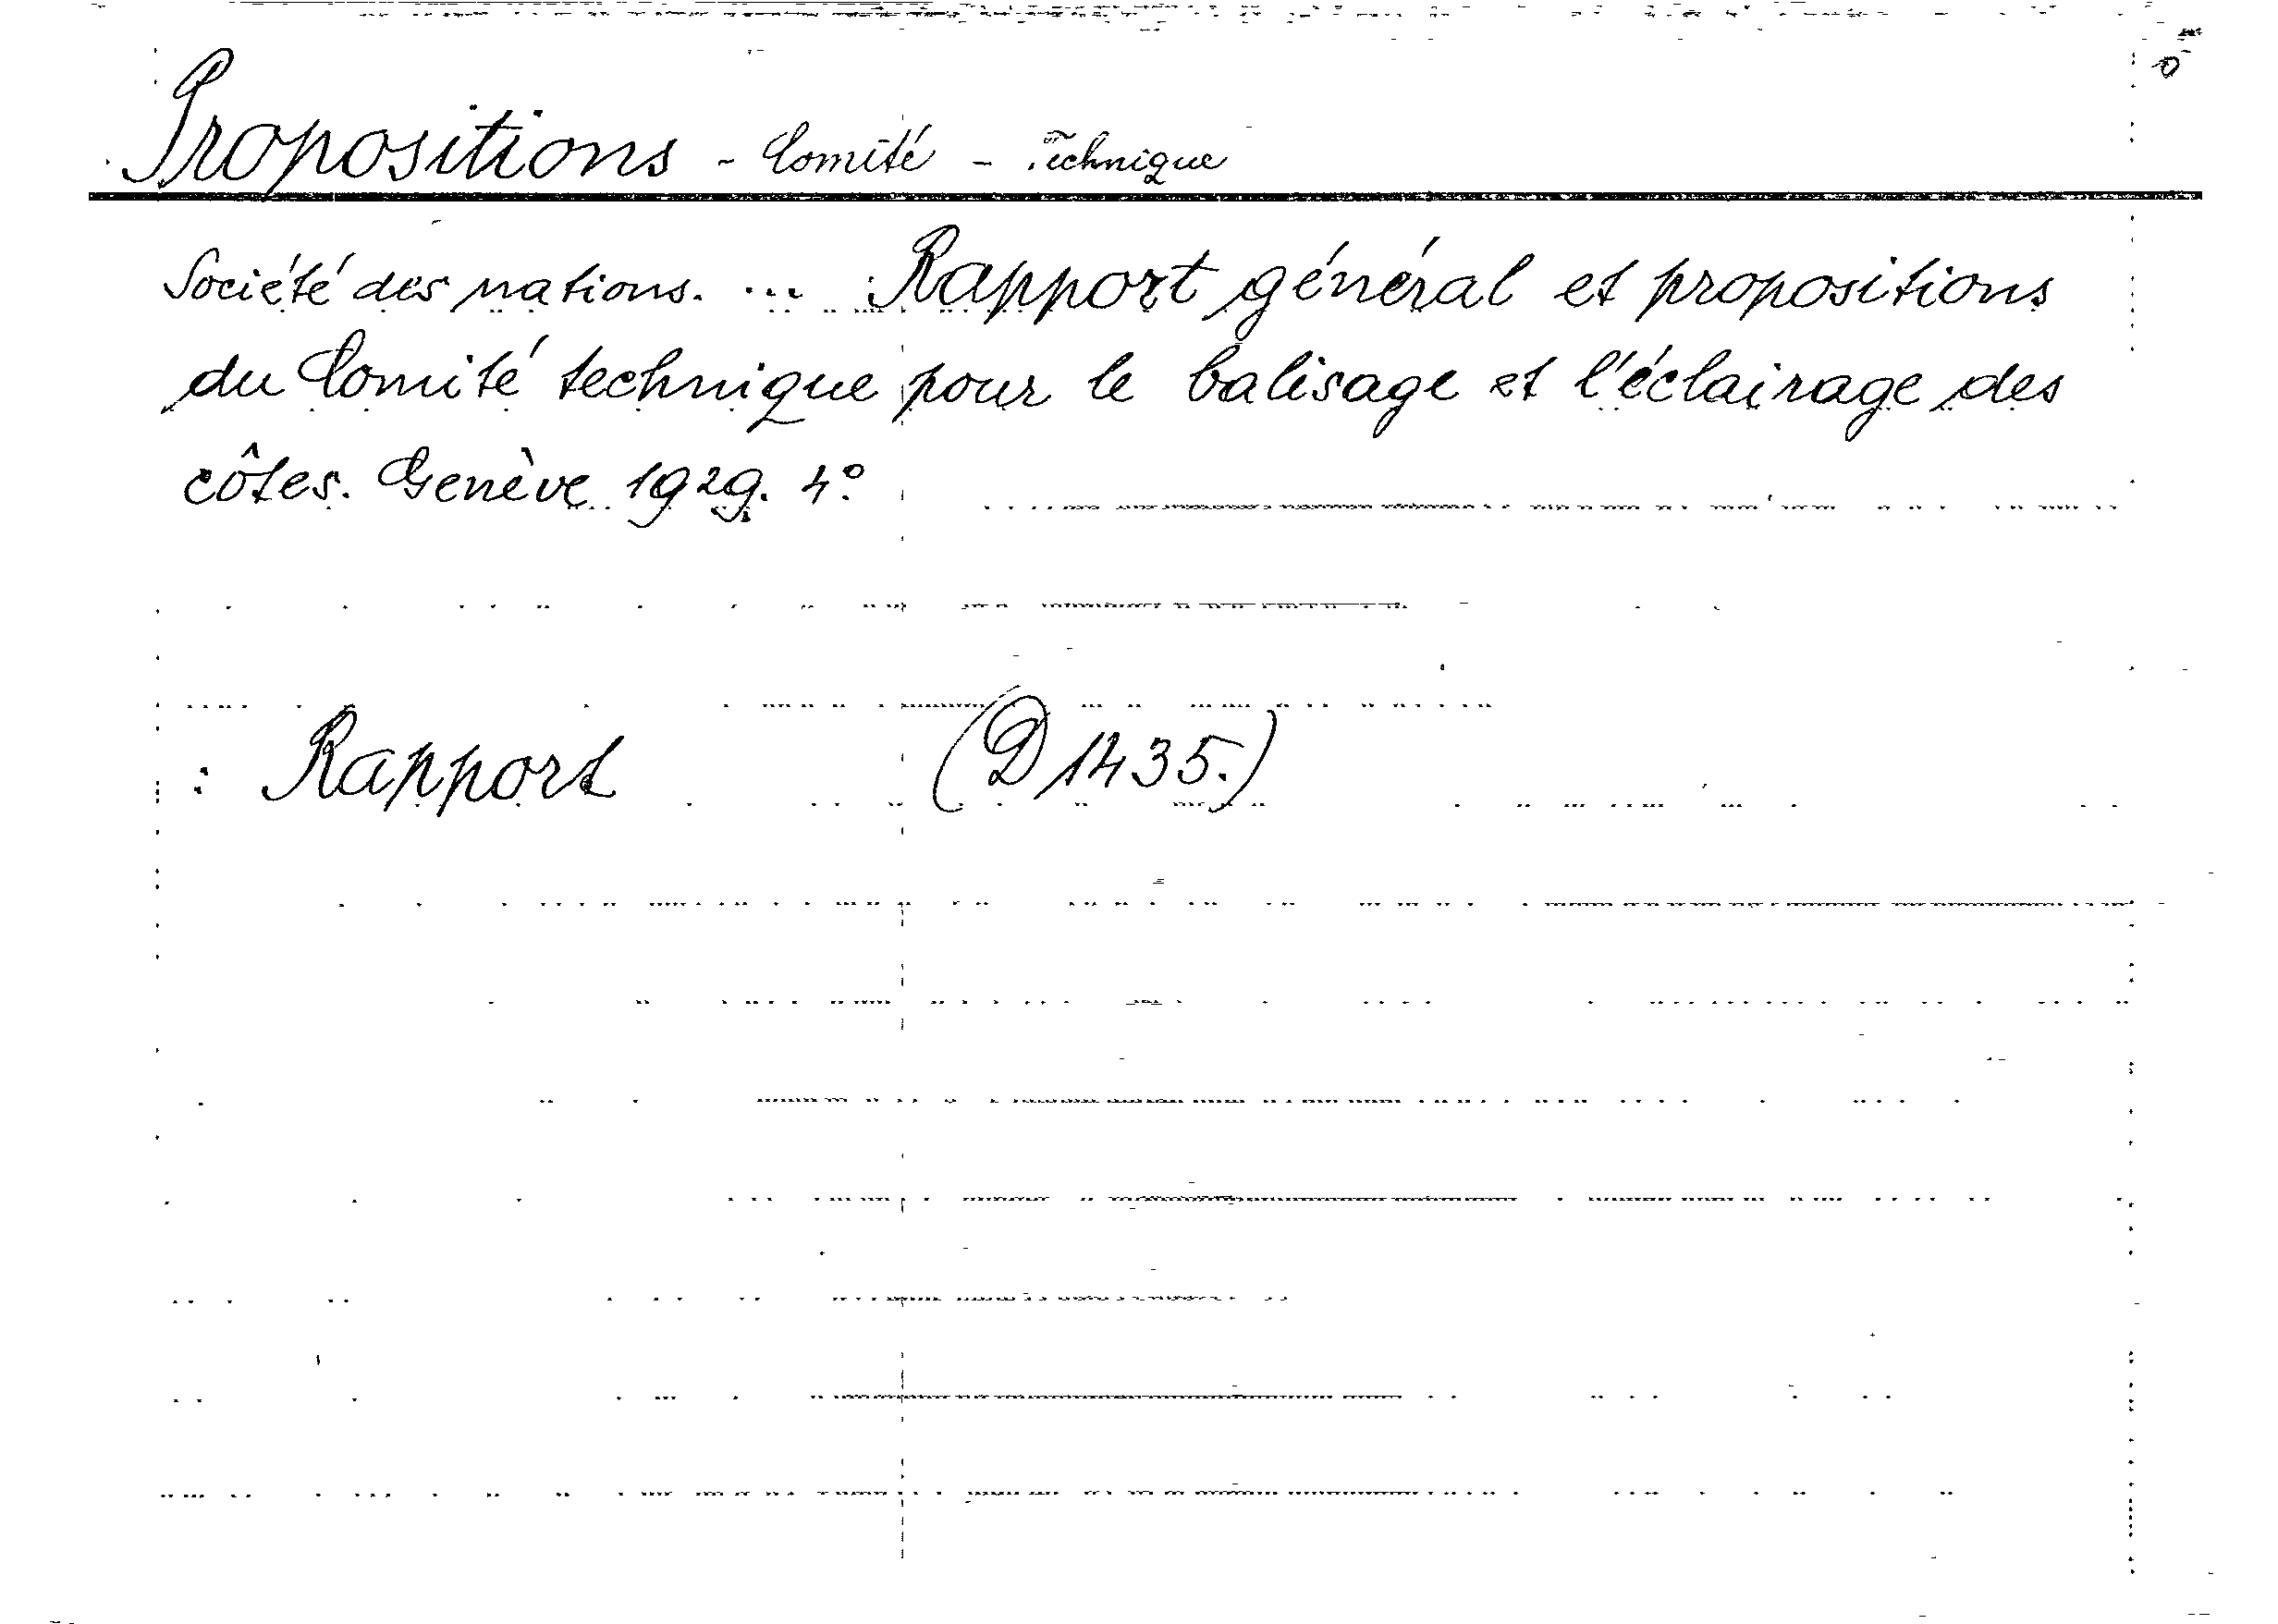 Propositions - Comité - Technique
Société des nations. ... Rapport général et propositions
du Comité technique pour le balisage et l'éclairage des
côtes. Genève 1929. 4°.
: Rapport (D 1435.)